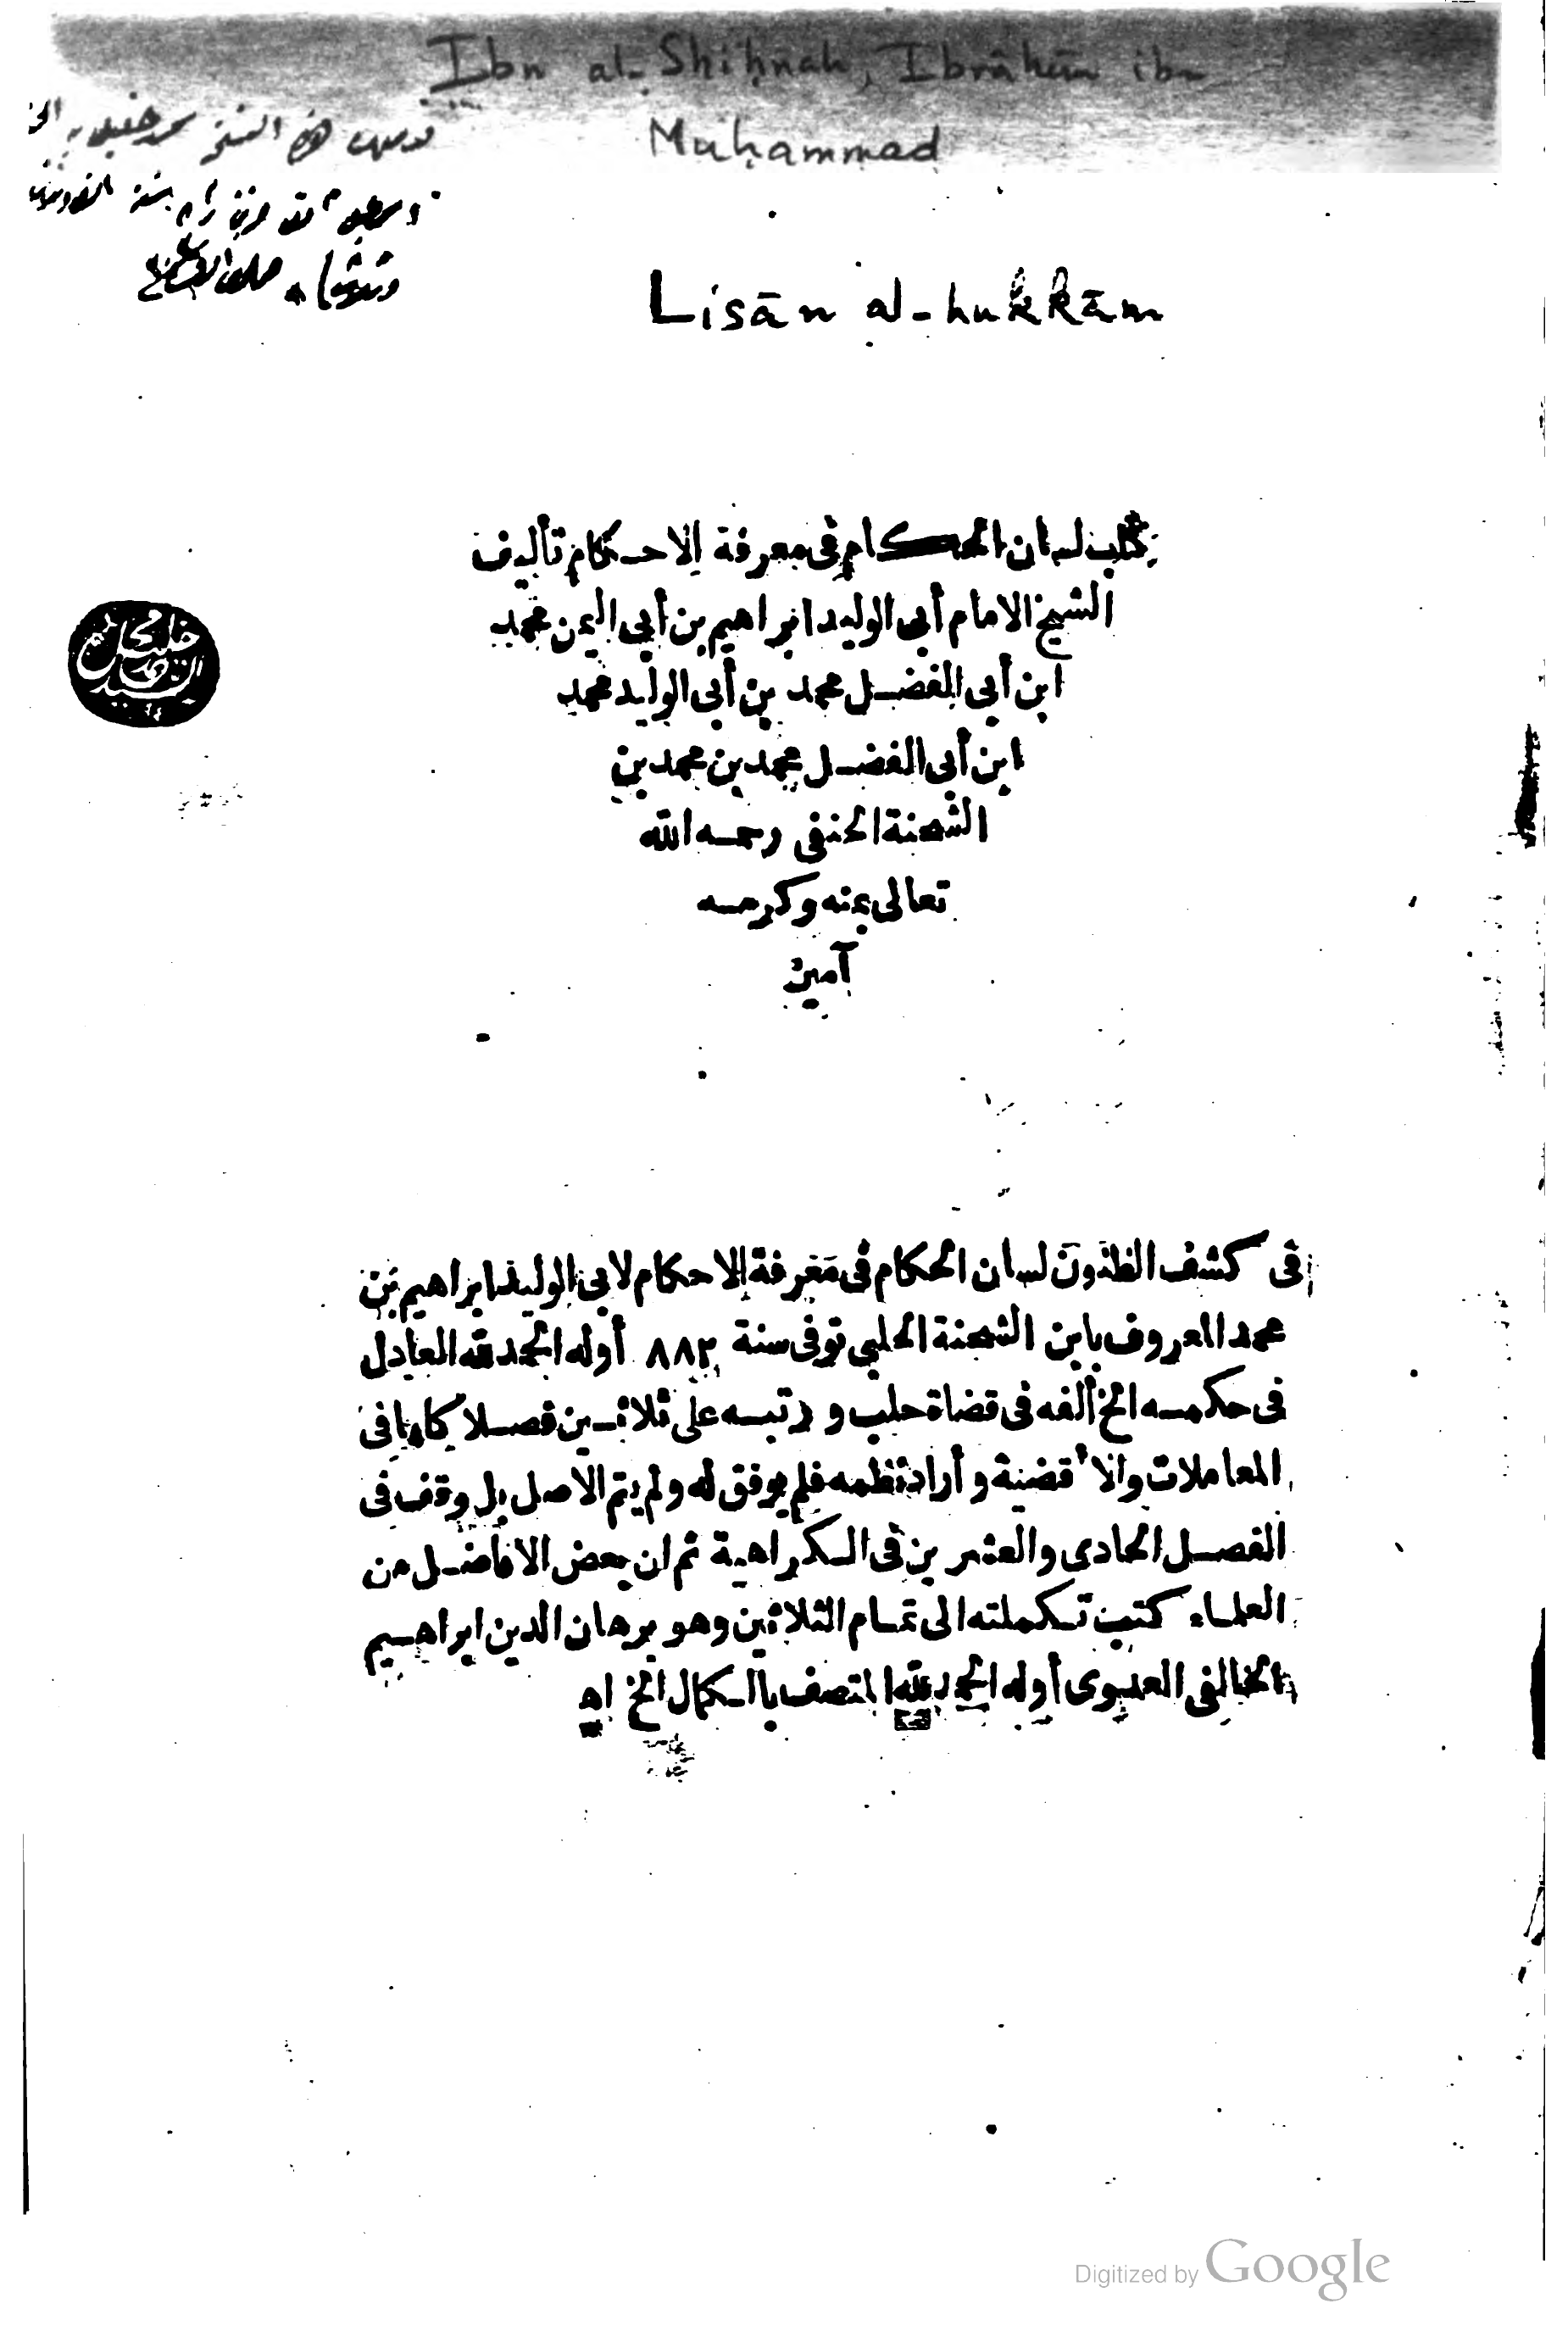 Ibn al-Shiḥnah, Ibrāhīm ibn
Muḥammad
Lisān al-ḥukkām
كتاب لسان الحكام فى معرفة الاحكام تأليف
الشيخ الامام أبى الوليد ابراهيم بن أبى اليمن محمد
ابن أبى الفضل محمد بن أبى الوليد محمد
ابن أبى الفضل محمد بن محمد بن
الشحنة الحنفى رحمه الله
تعالى بمنه وكرمه
آمين
فى كشف الظنون لسان الحكام فى معرفة الاحكام لابى الوليد ابراهيم بن
محمد المعروف بابن الشحنة الحلبى توفى سنة ٨٨٢ أوله الحمد لله العادل
فى حكمه الخ ألفه فى قضاة حلب ورتبه على ثلاثين فصلا كلها فى
المعاملات والأقضية وأراد نظمه فلم يوفق له ولم يتم الاصل بل وقف فى
الفصل الحادى والعشرين فى الكراهية ثم ان بعض الافاضل من
العلماء كتب تكملته الى تمام الثلاثين وهو برهان الدين ابراهيم
الخالفى العدوى أوله الحمد لله المتصف بالكمال الخ اه
Digitized by Google